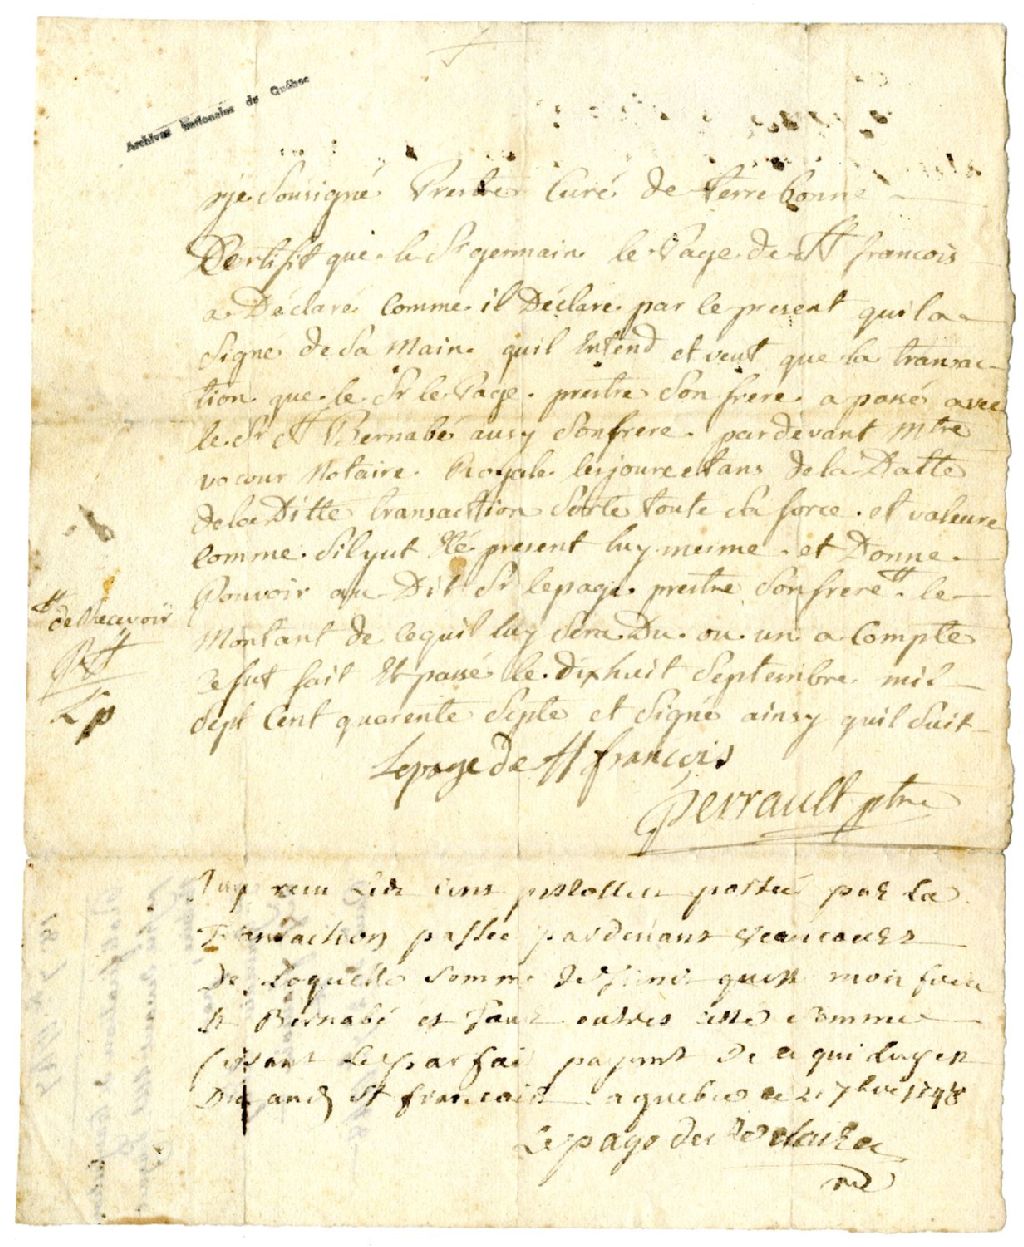 Archives Nationales de Québec
Je Sousigné Prestre Curé de terrebonne
Certifit que le Sr germain le Page de St francois
a Déclaré Comme il Déclare par le present quil a
Signé de Sa Main quil Entend et veut que la transac-
tion que le Sr le Page prestre Son frere a passé avec
le Sr St Bernabé ausy Son frere pardevant Mtre
vocour Notaire Royale les joure et ans de la Datte
de la Ditte transaction Sorte toute Sa force et valeure
Comme Sil y ut Eté present luy meime et Donne
Pouvoir au Dit Sr lepage prestre Son frere # le
# de Recevoir
Montant de Ce quil luy Sera Du ou un a Compte
Ce fut fait Et passé le dixhuit Septembre mil
Sept Cent quarente Septe et Signé ainsy quil Suit
Lp
Lepage de St françois
Perrault ptre
Jay recu Les Cens pistolles portée par La
Transaction passée pardevant
De Laquelle Somme quitte mon frere
St Bernabé et Sans Cette Somme
Le parfai payment De ce qui Luy est
Du St francois a quebec ce 21 7bre 1748
Lepage de Ste